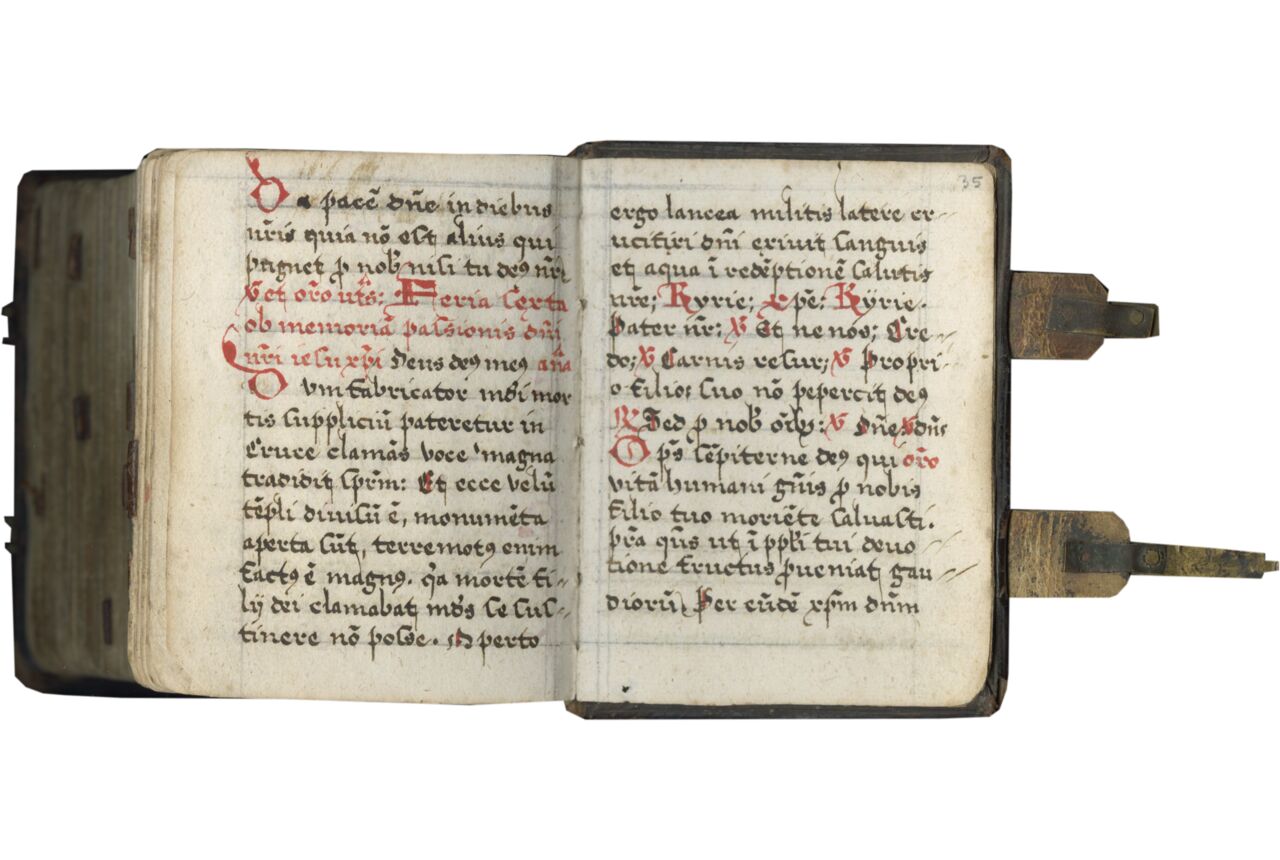 Da pacē dn̄e in diebus
nr̄is quia nō est alius qui
pugnet ꝓ nob̄ nisi tu deꝰ nr̄
℣ et or̄o ut s̄: Feria sexta
ob memoriā passionis dn̄i
nr̄i iesu xp̄i Deus deꝰ meꝰ an̄a
Cum fabricator mūdi mor
tis suppliciū pateretur in
Cruce clamās voce magna
tradidit sp̄m: Et ecce velū
tēpli divisū ē, monumēta
aperta sūt, terremotꝰ enim
factꝰ ē magnꝰ. q̄a mortē fi-
lij dei clamabat mūdꝰ se sus-
tinere nō posse. Aperto
35
ergo lancea militis latere cr-
ucifixi dn̄i exivit sanguis
et aqua ī redēptionē salutis
nr̄e; Kyrie; xp̄e: Kyrie.
Pater nr̄: ℣ Et ne nos; Cre-
do; ℣ Carnis resur; ℣ Propri-
o filio suo nō pepercit deꝰ
℟ Sed ꝓ nob̄ : ℣ Dn̄e ℣ dn̄s
Op̄s sēpiterne deꝰ qui or̄o
vitā humani gn̄is ꝓ nobis
filio tuo moriēte salvasti.
pr̄a qs̄ ut ī ppl̄i tui devo
tione fructus ꝓveniat gau
diorū. Per eūdē xp̄m dn̄m